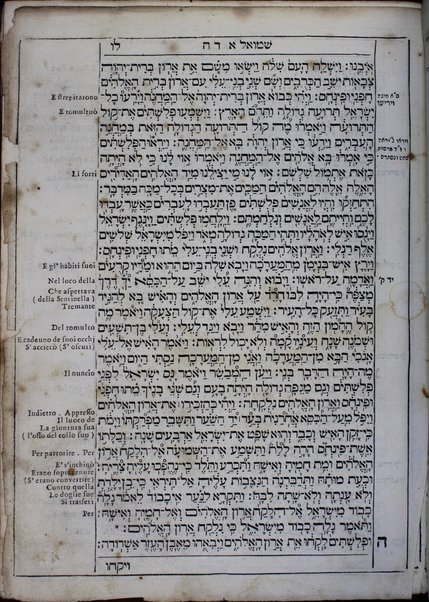 שמואל א ד ה לו
איבנו: וישלח העם שלה וישאו משם את ארון ברית־יהוה
צבאות ישב הכרבים ושם שני בני־עלי עם ארון ברית האלהים
חפני ופינחס: ויהי כבוא ארון ברית־יהוה אל המחנה וירעו כל־
ישראל תרועה גדולה ותהם הארץ: וישמעו פלשתים את־קול
התרועה ויאמרו מה קול התרועה הגדולה הזאת במחנה
העברים וידעו כי ארון יהוה בא אל המחנה: ויראו הפלשתים
כי אמרו בא אלהים אל־המחנה ויאמרו אוי לנו כי לא היתה
כזאת אתמול שלשם: אוי לנו מי יצילנו מיד האלהים האדירים
האלה אלה הם האלהים המכים את־מצרים בכל־מכה במדבר:
התחזקו והיו לאנשים פלשתים פן תעבדו לעברים כאשר עבדו
לכם והייתם לאנשים ונלחמתם: וילחמו פלשתים וינגף ישראל
וינסו איש לאהליו ותהי המכה גדולה מאד ויפל מישראל שלשים
אלף רגלי: וארון אלהים נלקח ושני בני־עלי מתו חפני ופינחס:
וירץ איש־בנימן מהמערכה ויבא שלה ביום ההוא ומדיו קרעים
ואדמה על־ראשו: ויבוא והנה עלי ישב על־הכסא יך דרך
מצפה כי־היה לבו חרד על ארון האלהים והאיש בא להגיד
בעיר ותזעק כל־העיר: וישמע עלי את־קול הצעקה ויאמר מה
קול ההמון הזה והאיש מהר ויבא ויגד לעלי: ועלי בן־תשעים
ושמנה שנה ועיניו קמה ולא יכול לראות: ויאמר האיש אל־עלי
אנכי הבא מן־המערכה ואני מן־המערכה נסתי היום ויאמר
מה היה הדבר בני: ויען המבשר ויאמר נס ישראל לפני
פלשתים וגם מגפה גדולה היתה בעם וגם שני בניך מתו חפני
ופינחס וארון האלהים נלקחה: ויהי כהזכירו את־ארון האלהים
ויפל מעל־הכסא אחרנית בעד יד השער ותשבר מפרקתו וימת
כי זקן האיש וכבד והוא שפט את־ישראל ארבעים שנה: וכלתו
אשת־פינחס הרה ללת ותשמע את־השמועה אל־הלקח ארון
האלהים ומת חמיה ואישה ותכרע ותלד כי־נהפכו עליה צריה:
וכעת מותה ותדברנה הנצבות עליה אל תיראי כי בן ילדת
ולא ענתה ולא־שתה לבה: ותקרא לנער אי כבוד לאמר גלה
כבוד מישראל אל־הלקח ארון האלהים ואל־חמיה ואישה:
ותאמר גלה כבוד מישראל כי נלקח ארון האלהים:
ה ופלשתים לקחו את ארון האלהים ויבאהו מאבן העזר אשדודה:
ויקחו
E strepitarono
E tomultuò
Li forti
E gl' habiti suoi
Nel loco della
Che aspettava
(della Sentinella)
Tremante
Del tomulto
E cadauno de suoi occhi
S' accecò (S' oscuri)
Il nuncio
Indietro. Appresso
Il luoco de
La giontura sua
(l'osso del collo suo)
Per partorire. Per
E s'inchinò
Erano sopravenute
(S' erano convertite)
Contro quella
Le doglie sue
Si trasferì
Per